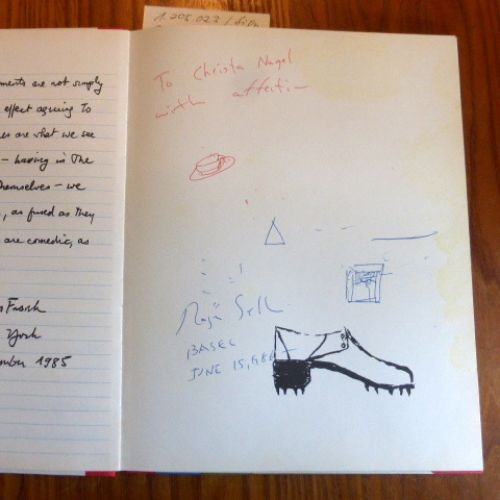 1.205.023
ments are not simply
effect agreeing to
es are what we see
– having in the
themselves – we
, as fused as they
are comedic, as
York
mber 1985
To Christa Nagel
with affection
BASEL
JUNE 15,